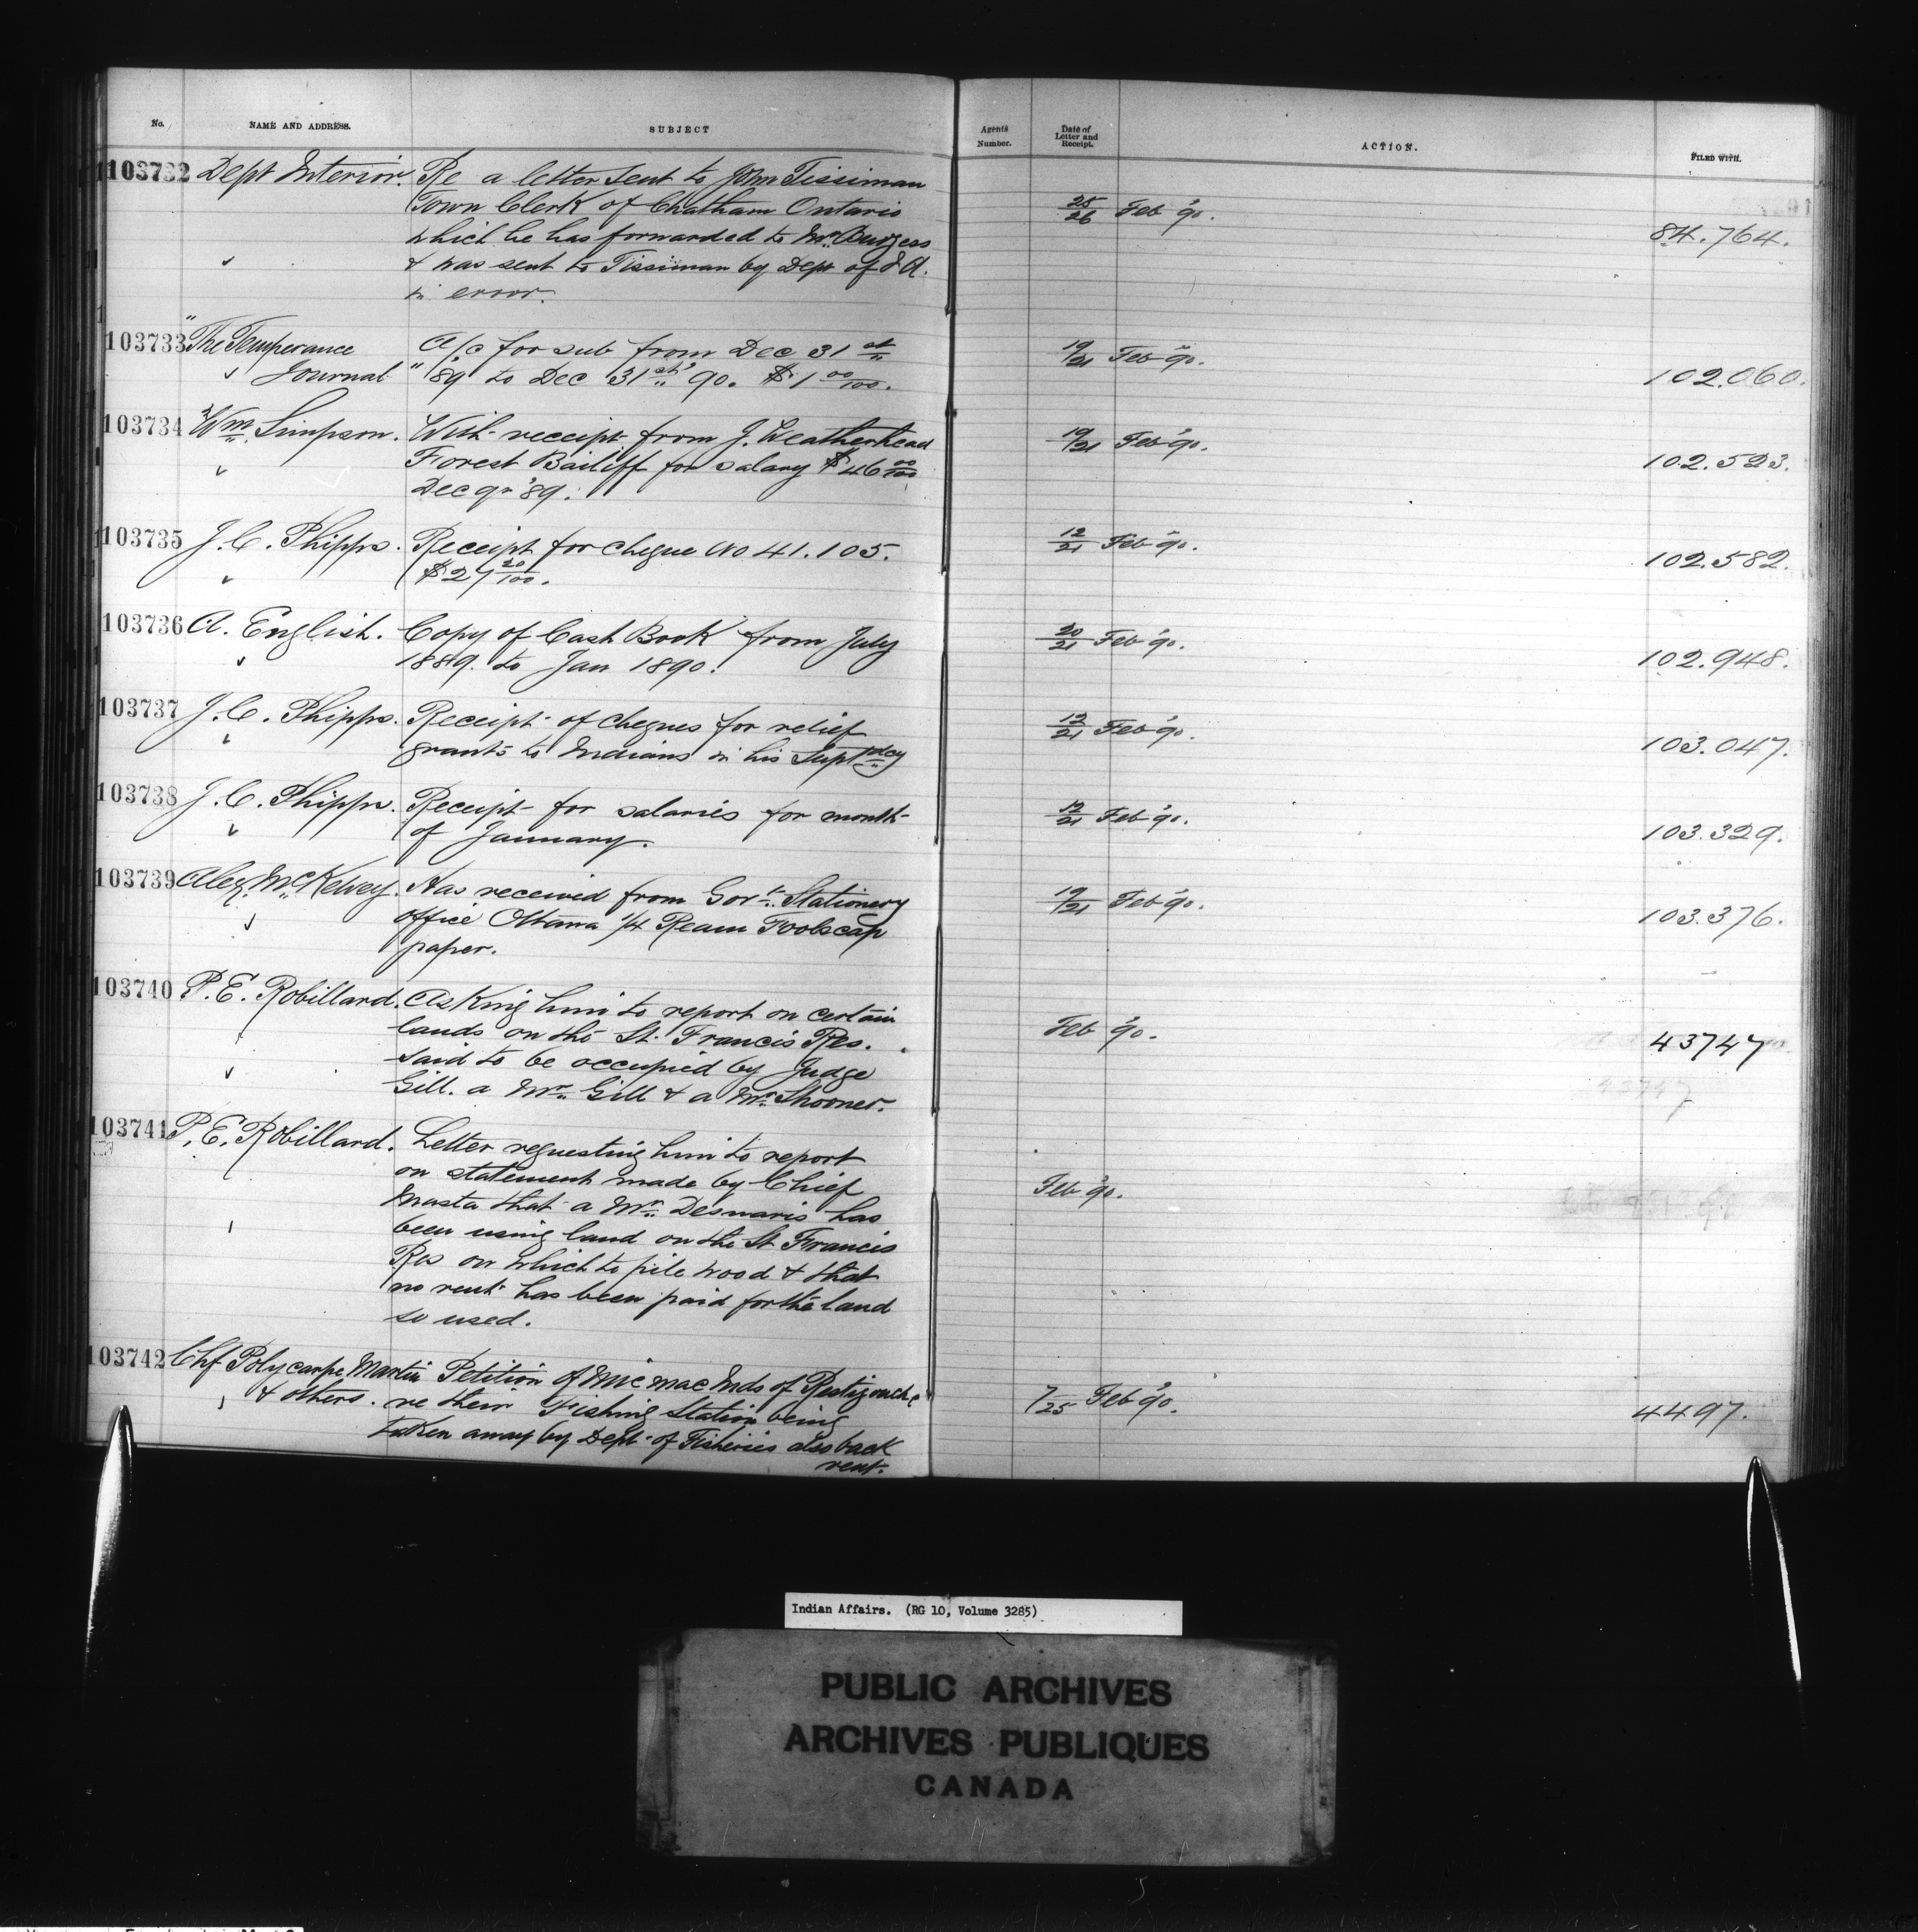 No. NAME AND ADDRESS. SUBJECT Agents Number. Date of Letter and Receipt. ACTION. FILED WITH.
103732 Dept Interior. Re a letter sent to John Tissiman
Town Clerk of Chatham Ontario 25/26 Feb '90. 84.764.
which he has forwarded to Mr. Burgess
& was sent to Tissiman by Dept of I A.
in error.
103733 The Temperance A/c for sub from Dec 31st 19/21 Feb '90.
Journal '89 to Dec 31st '90. $1 00/100. 102.060.
103734 Wm. Simpson. With receipt from J. Weatherhead 19/21 Feb '90.
Forest Bailiff for salary $46 00/100 102.523.
Dec qr '89.
103735 J. C. Phipps. Receipt for cheque No 41.105. 12/21 Feb '90.
$27 20/100. 102.582.
103736 A. English. Copy of Cash Book from July 20/21 Feb '90.
1889. to Jan 1890. 102.948.
103737 J. C. Phipps. Receipt of cheques for relief 12/21 Feb '90.
grants to Indians in his Suptdcy 103.047.
103738 J. C. Phipps. Receipt for salaries for month 12/21 Feb '90.
of January. 103.329.
103739 Alex. McKelvey. Has received from Govt. Stationery 19/21 Feb '90.
office Ottawa 1/4 Ream Foolscap 103.376.
paper.
103740 P. E. Robillard. Asking him to report on certain
lands on the St. Francis Res. Feb '90. 43747
said to be occupied by Judge
Gill. a Mr. Gill & a Mr. Shooner.
103741 P. E. Robillard. Letter requesting him to report
on statement made by Chief
Masta that a Mr. Desmaris has Feb '90.
been using land on the St Francis
Res on which to pile wood & that
no rent has been paid for the land
so used.
103742 Chf Polycarpe Martin Petition of Micmac Inds of Restigouche
& others. re their Fishing Station being 7/25 Feb '90. 4497.
taken away by Dept of Fisheries also back
rent.
Indian Affairs. (RG 10, Volume 3285)
PUBLIC ARCHIVES
ARCHIVES PUBLIQUES
CANADA